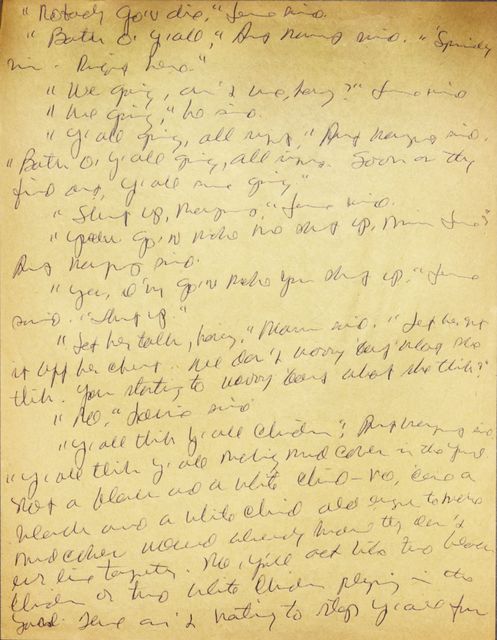 "Nobody go'n die," Louise said.
"Both o' y'all," Aunt Margaret said. "
"We going, ain't we, honey?" Louise said
"We going," he said.
"Y'all going, all right," Aunt Margaret said.
"Both o' y'all going, all right. Soon as they
find out, y'all sure going"
"Shut up, Margaret," Louise said.
"You go'n make me shut up, Miss Louise?"
Aunt Margaret said.
"Yes, I'm go'n make you shut up," Louise
said. "Shut up."
"Let her talk, honey," Marcus said. "Let her get
it off her chest. We don't worry 'bout what she
think. You starting to worry 'bout what she think?"
"No," Louise said
"Y'all think y'all children," Aunt Margaret said
"Y'all think y'all making mud cakes in the yard.
Not a black and a white child—no, 'cause a
black and a white child old enough to make
mud cakes would already know they don't
live together. No, y'all act like two black
children or two white children playing in the
yard. Some ain't nothing to stop y'all